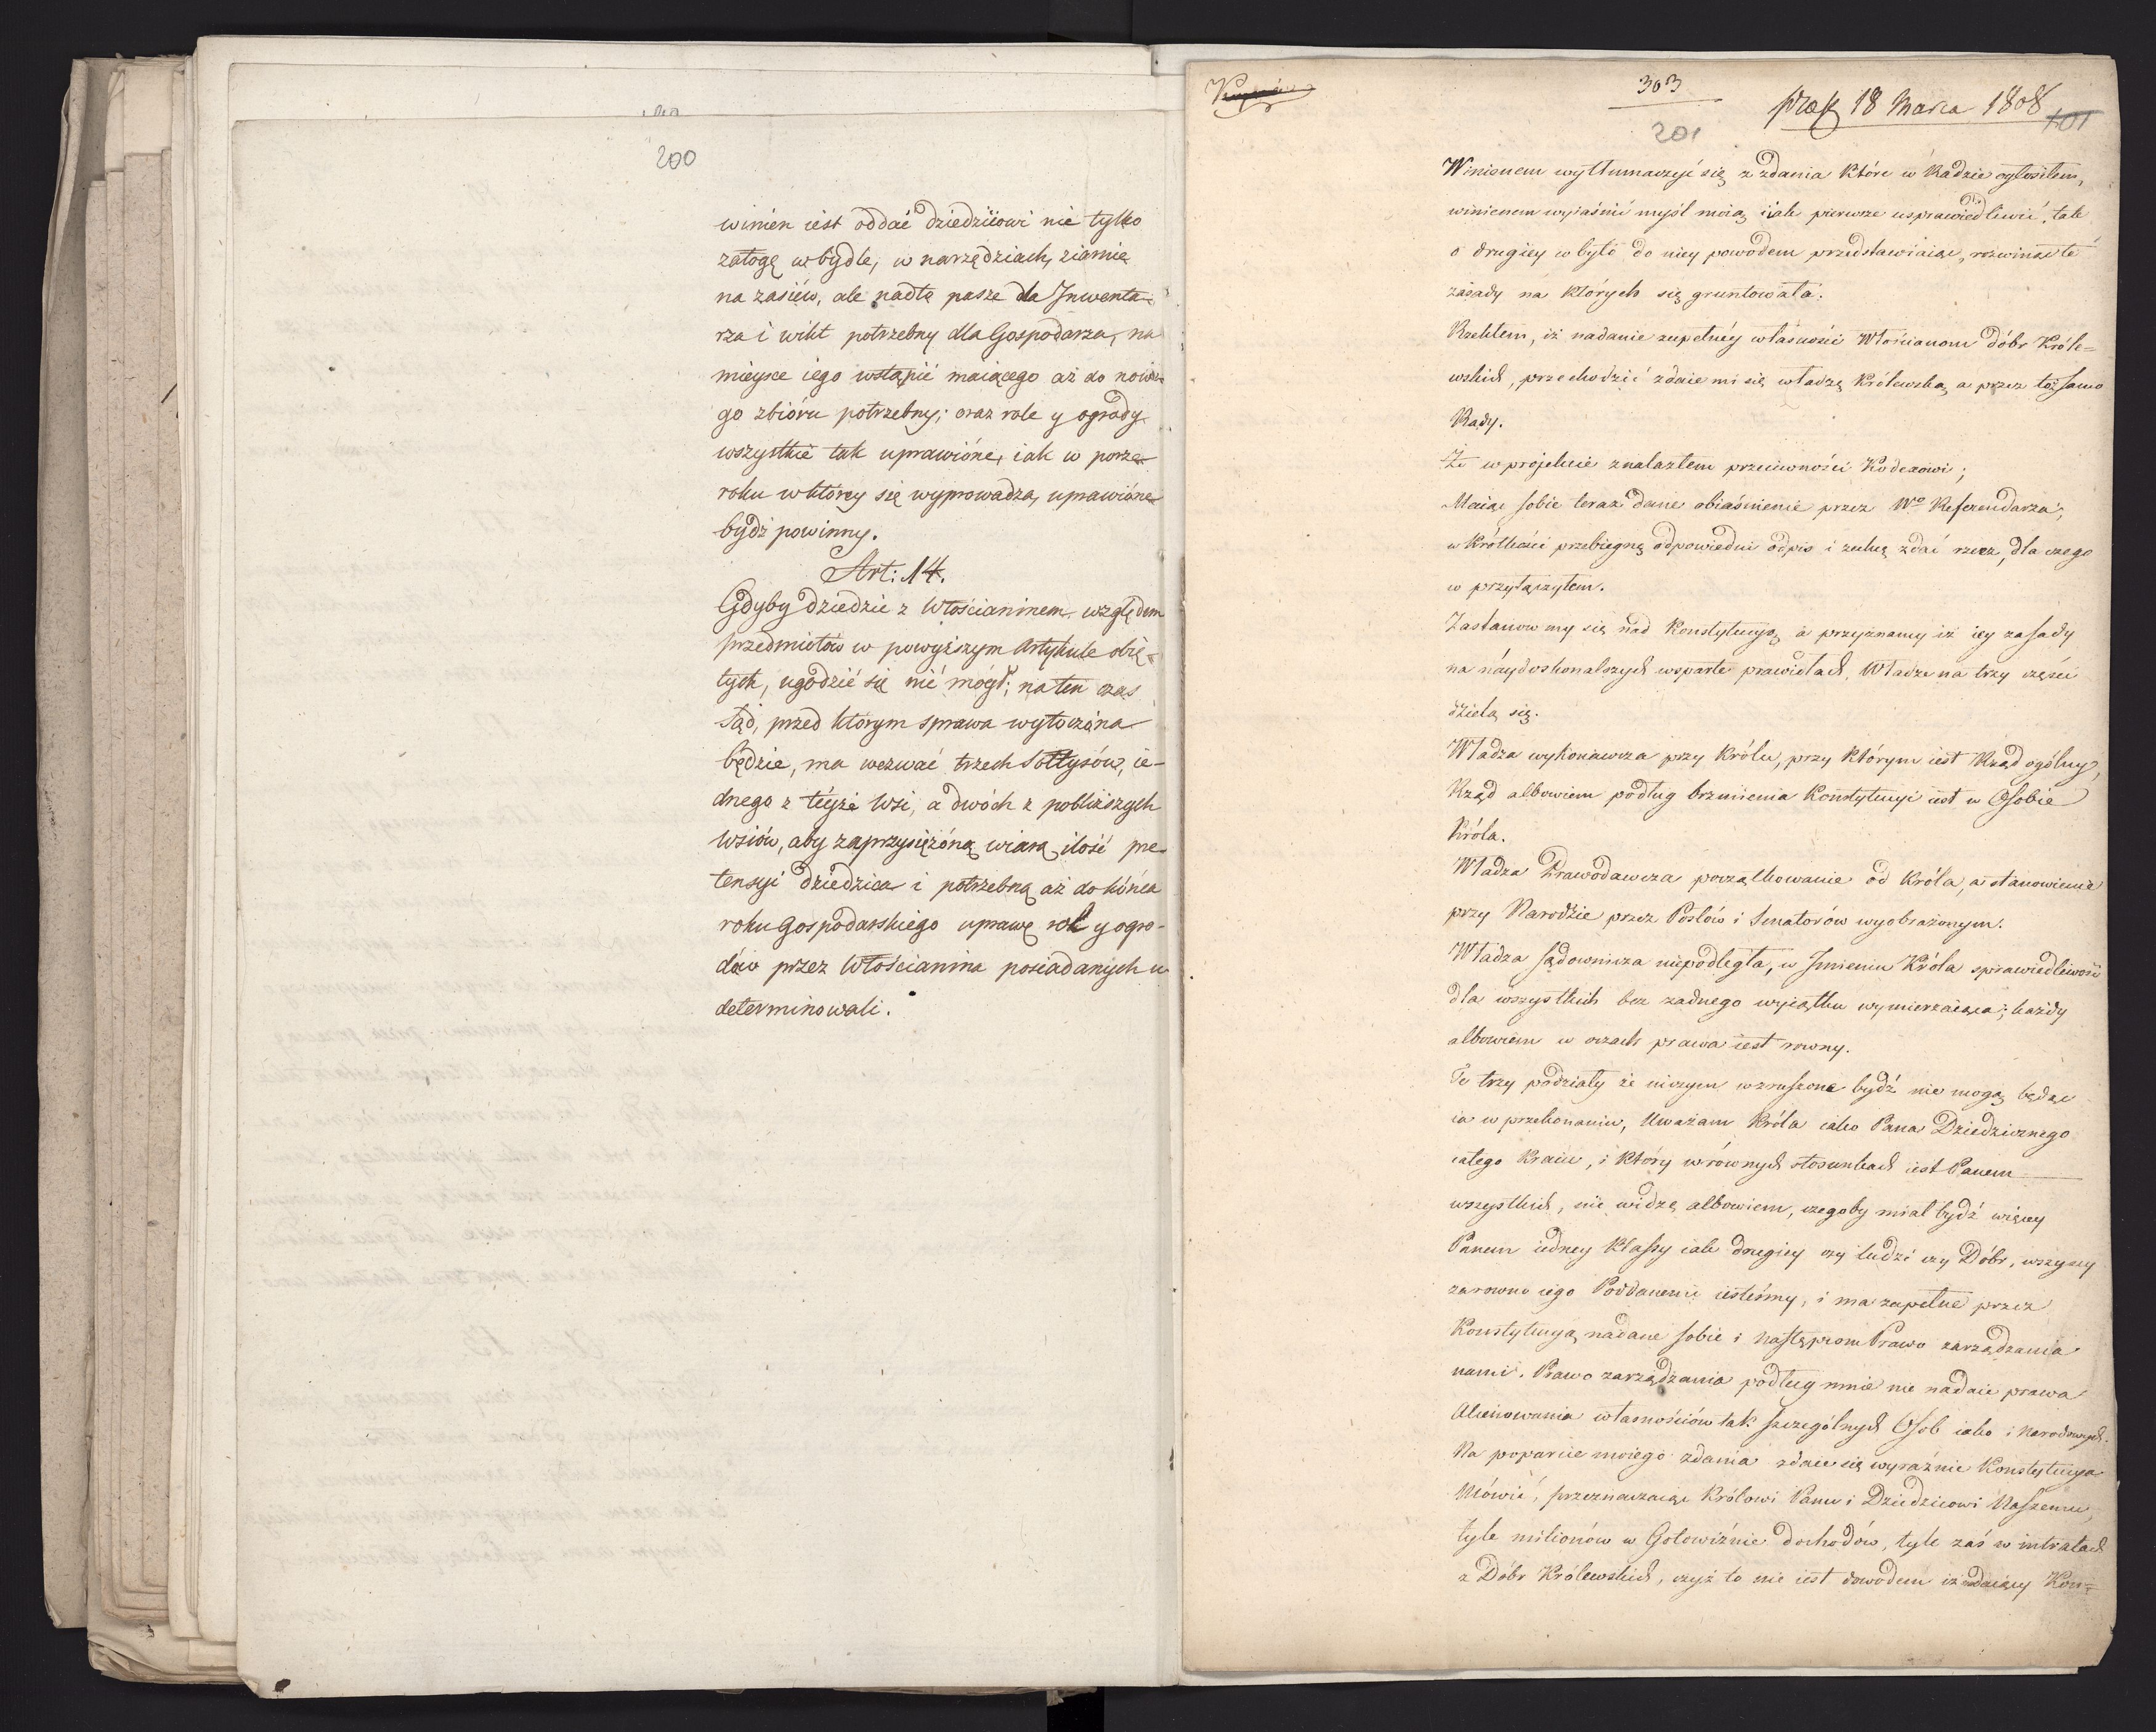 200
winien iest oddać dziedzicowi nie tylko
załogę w bydle, w narzędziach, ziarnie
na zasiéw, ale nadto pasze dla Inwenta-
rza i wikt potrzebny dla Gospodarza, na
mieysce iego wstąpić maiącego aż do nowe-
go zbióru potrzebny; oraz role y ogrody
wszystkie tak uprawióne, iak w porze
roku w którey się wyprowadza, uprawióne
bydź powinny.
Art: 14.
Gdyby dziedzic z Włościaninem względem
przedmiotów w powyższym Artykule obię-
tych, ugodzić się nié mógł; na ten czas
Sąd, przed którym sprawa wytoczóna
będzie, ma wezwać trzech Sołtysów, ie-
dnego z téyże Wsi, a dwóch z pobliższych
Wsiów, aby zaprzysiężóną wiarą ilość pre-
tensyi dziedzica i potrzebną aż do kóńca
roku Gospodarskiego uprawę rol y ogro-
dów przez Włościanina posiadanych u
determinowali.
303
201
praes 18 Marca 1808
101
Winienem wytłumaczyć się z zdania które w Radzie ogłosiłem,
winienem wyiaśnić myśl moią i iak pierwsze usprawiedliwić, tak
o drugiey co było do niey powodem przedstawiaiąc, rozwinąć te
zasady na których się gruntowała.
Rzekłem, iż nadanie zupełnéy własności Włościanom dóbr Króle=
wskich, przechodzić zdaie mi się władzę Królewską a przez toż samo
Rady.
Że w projekcie znalazłem przeciwności Kodexowi;
Maiąc sobie teraz dane obiaśnienie przez Wo Referendarza;
w krótkości przebiegnę odpowiedni odpis i zechcę zdać rzecz, dla czego
w przyłączyłem.
Zastanowmy się nad Konstytucyą a przyznamy iż iey zasady
na náydoskonalszych wsparte prawidłach. Władze na trzy części
dzielą się.
Władza wykonawcza przy Królu, przy którym iest Rząd ogólny,
Rząd albowiem podług brzmienia Konstytucyi iest w Osobie
Króla.
Władza Prawodawcza początkowanie od Króla, a stanowienie
przy Narodzie przez Posłów i Senatorów wyobrażonym.
Władza sądownicza niepodległa, w Imieniu Króla sprawiedliwość
dla wszystkich bez żadnego wyiątku wymierzaiąca; każdy
albowiem w oczach prawa iest rowny.
Te trzy podziały że niczym wzruszone bydź nie mogą będąc
ia w przekonaniu, Uważam Króla iako Pana Dziedzicznego
całego Kraiu, i który w równych stosunkach iest Panem
wszystkich, nie widzę albowiem, czegoby miał bydź więcey
Panem iedney Klassy iak drugiey czy ludzi czy Dóbr, wszyscy
zarowno iego Poddanemi iesteśmy, i ma zupełne przez
Konstytucyą nadane sobie i Następcom Prawo zarządzania
nami. Prawo zarządzania podług mnie nie nadaie prawa
Alienowania własnościów tak szczególnych Osob iako i Narodowych.
Na poparcie moiego zdania zdaie się wyraźnie Konstytucya
Mówić, przeznaczaiąc Królowi Panu i Dziedzicowi Naszemu,
tyle milionów w Gotowiźnie dochodów, tyle zaś w intratach
z Dóbr Królewskich, czyż to nie iest dowodem iż nadaiący Kon=